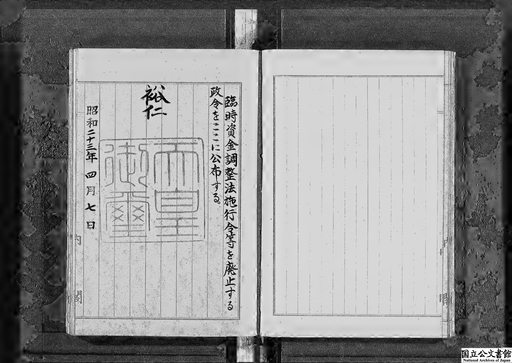 臨時資金調整法施行令等を廃止する
政令をここに公布する。
裕仁
天皇
御璽
昭和二十三年四月七日
国立公文書館
National Archives of Japan